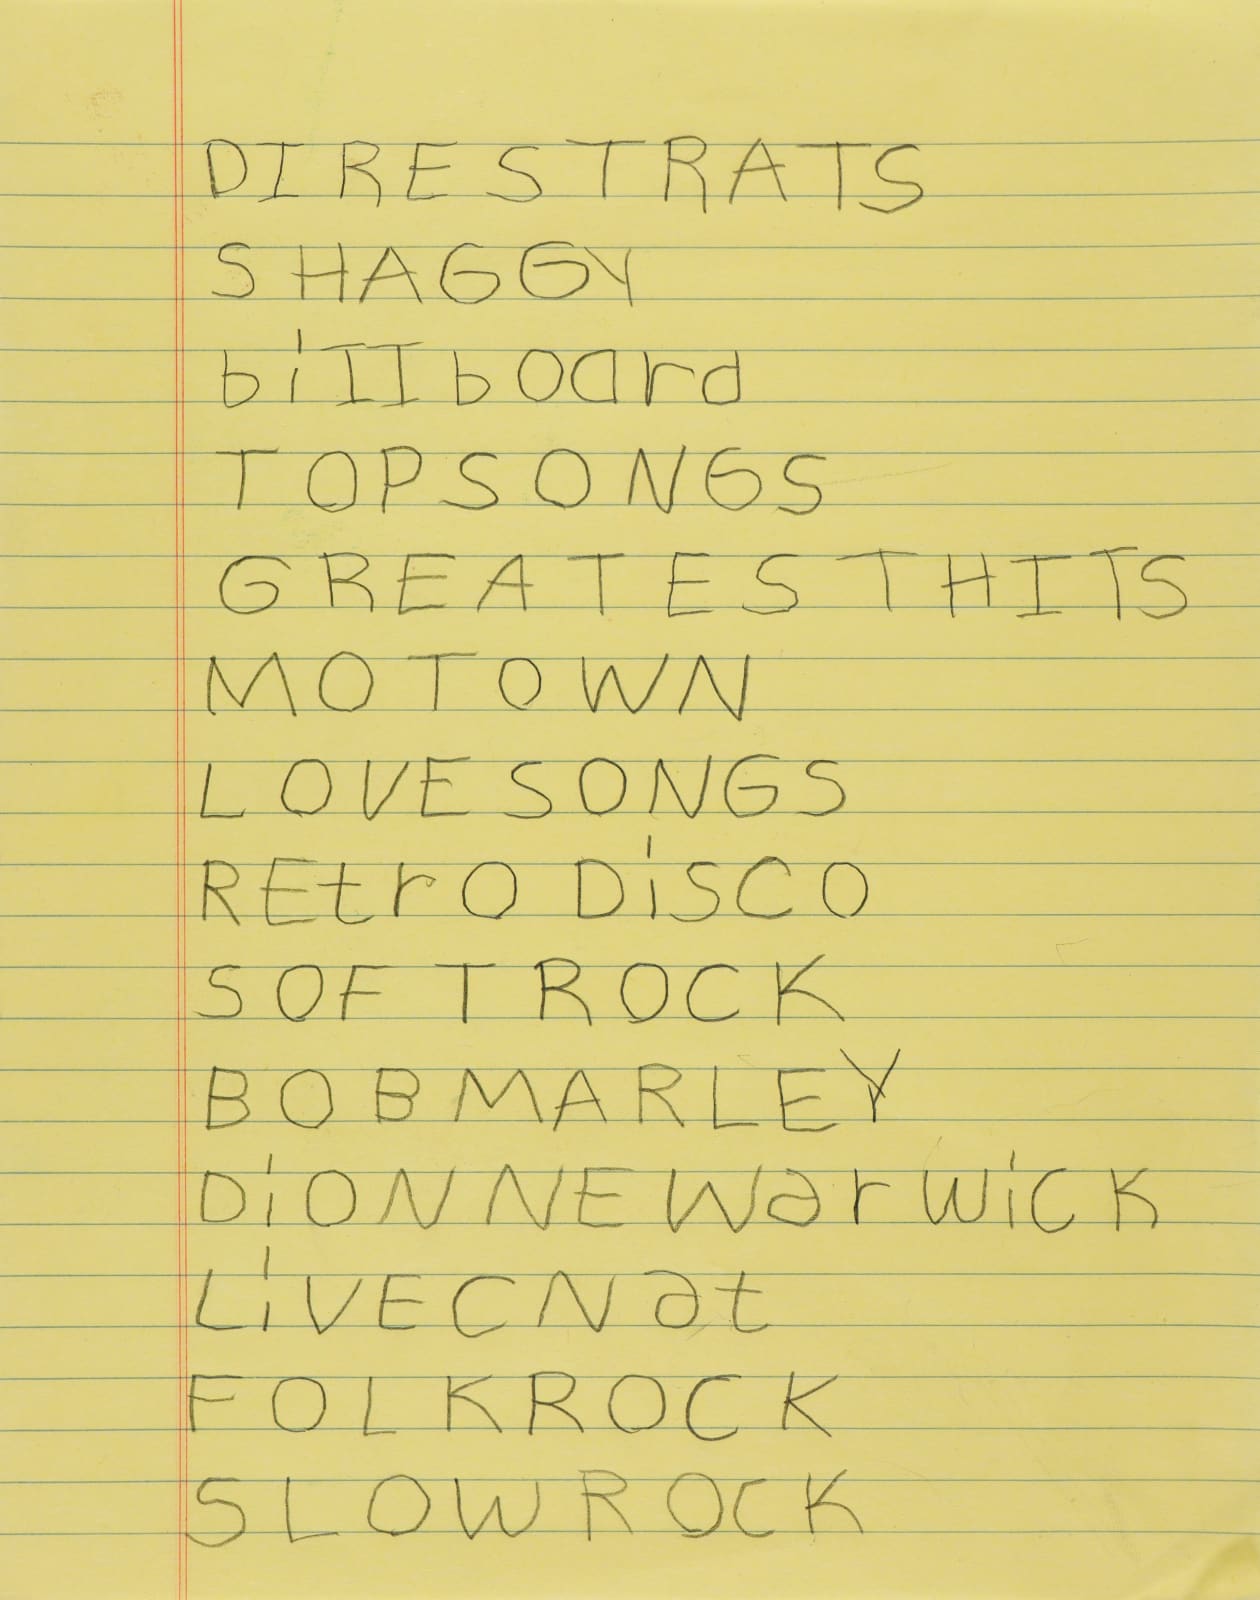 DIRESTRATS
SHAGGY
billboard
TOPSONGS
GREATESTHITS
MOTOWN
LOVESONGS
REtrO DiSCO
SOFTROCK
BOBMARLEY
DiONNEWarWiCK
LiVECNat
FOLKROCK
SLOWROCK